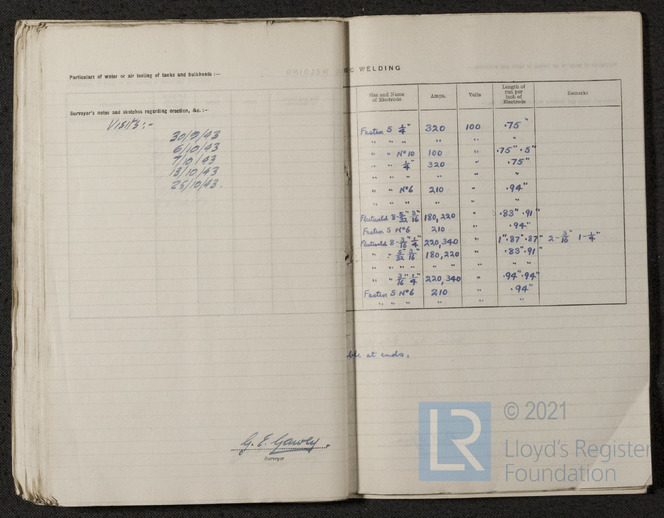 Particulars of water or air testing of tanks and bulkheads :—
Surveyor's notes and sketches regarding erection, &c. :—
Visits :-
30/9/43
6/10/43
7/10/43
13/10/43
25/10/43.
Surveyor
WELDING
Size and Name of Electrode Amps. Volts Length of run per inch of Electrode Remarks
Fastex 5 1/4" 320 100 .75"
" " " " " "
" " Nº10 100 " .75" .5"
" " 1/4" 320 " .75"
" " " " " "
" " Nº6 210 " .94"
180,220 " .83" .91"
Fastex 5 Nº6 210 " .94"
220,340 " 1" .87" .87" 2-3/16" 1-1/4"
" - 5/32" 3/16" 180,220 " .83" .91"
" " " " " "
" " 3/16" 1/4" 220,340 " .94" .94"
Fastex 5 Nº6 210 " .94"
" " " " "
at ends.
LR © 2021
Lloyd's Register
Foundation